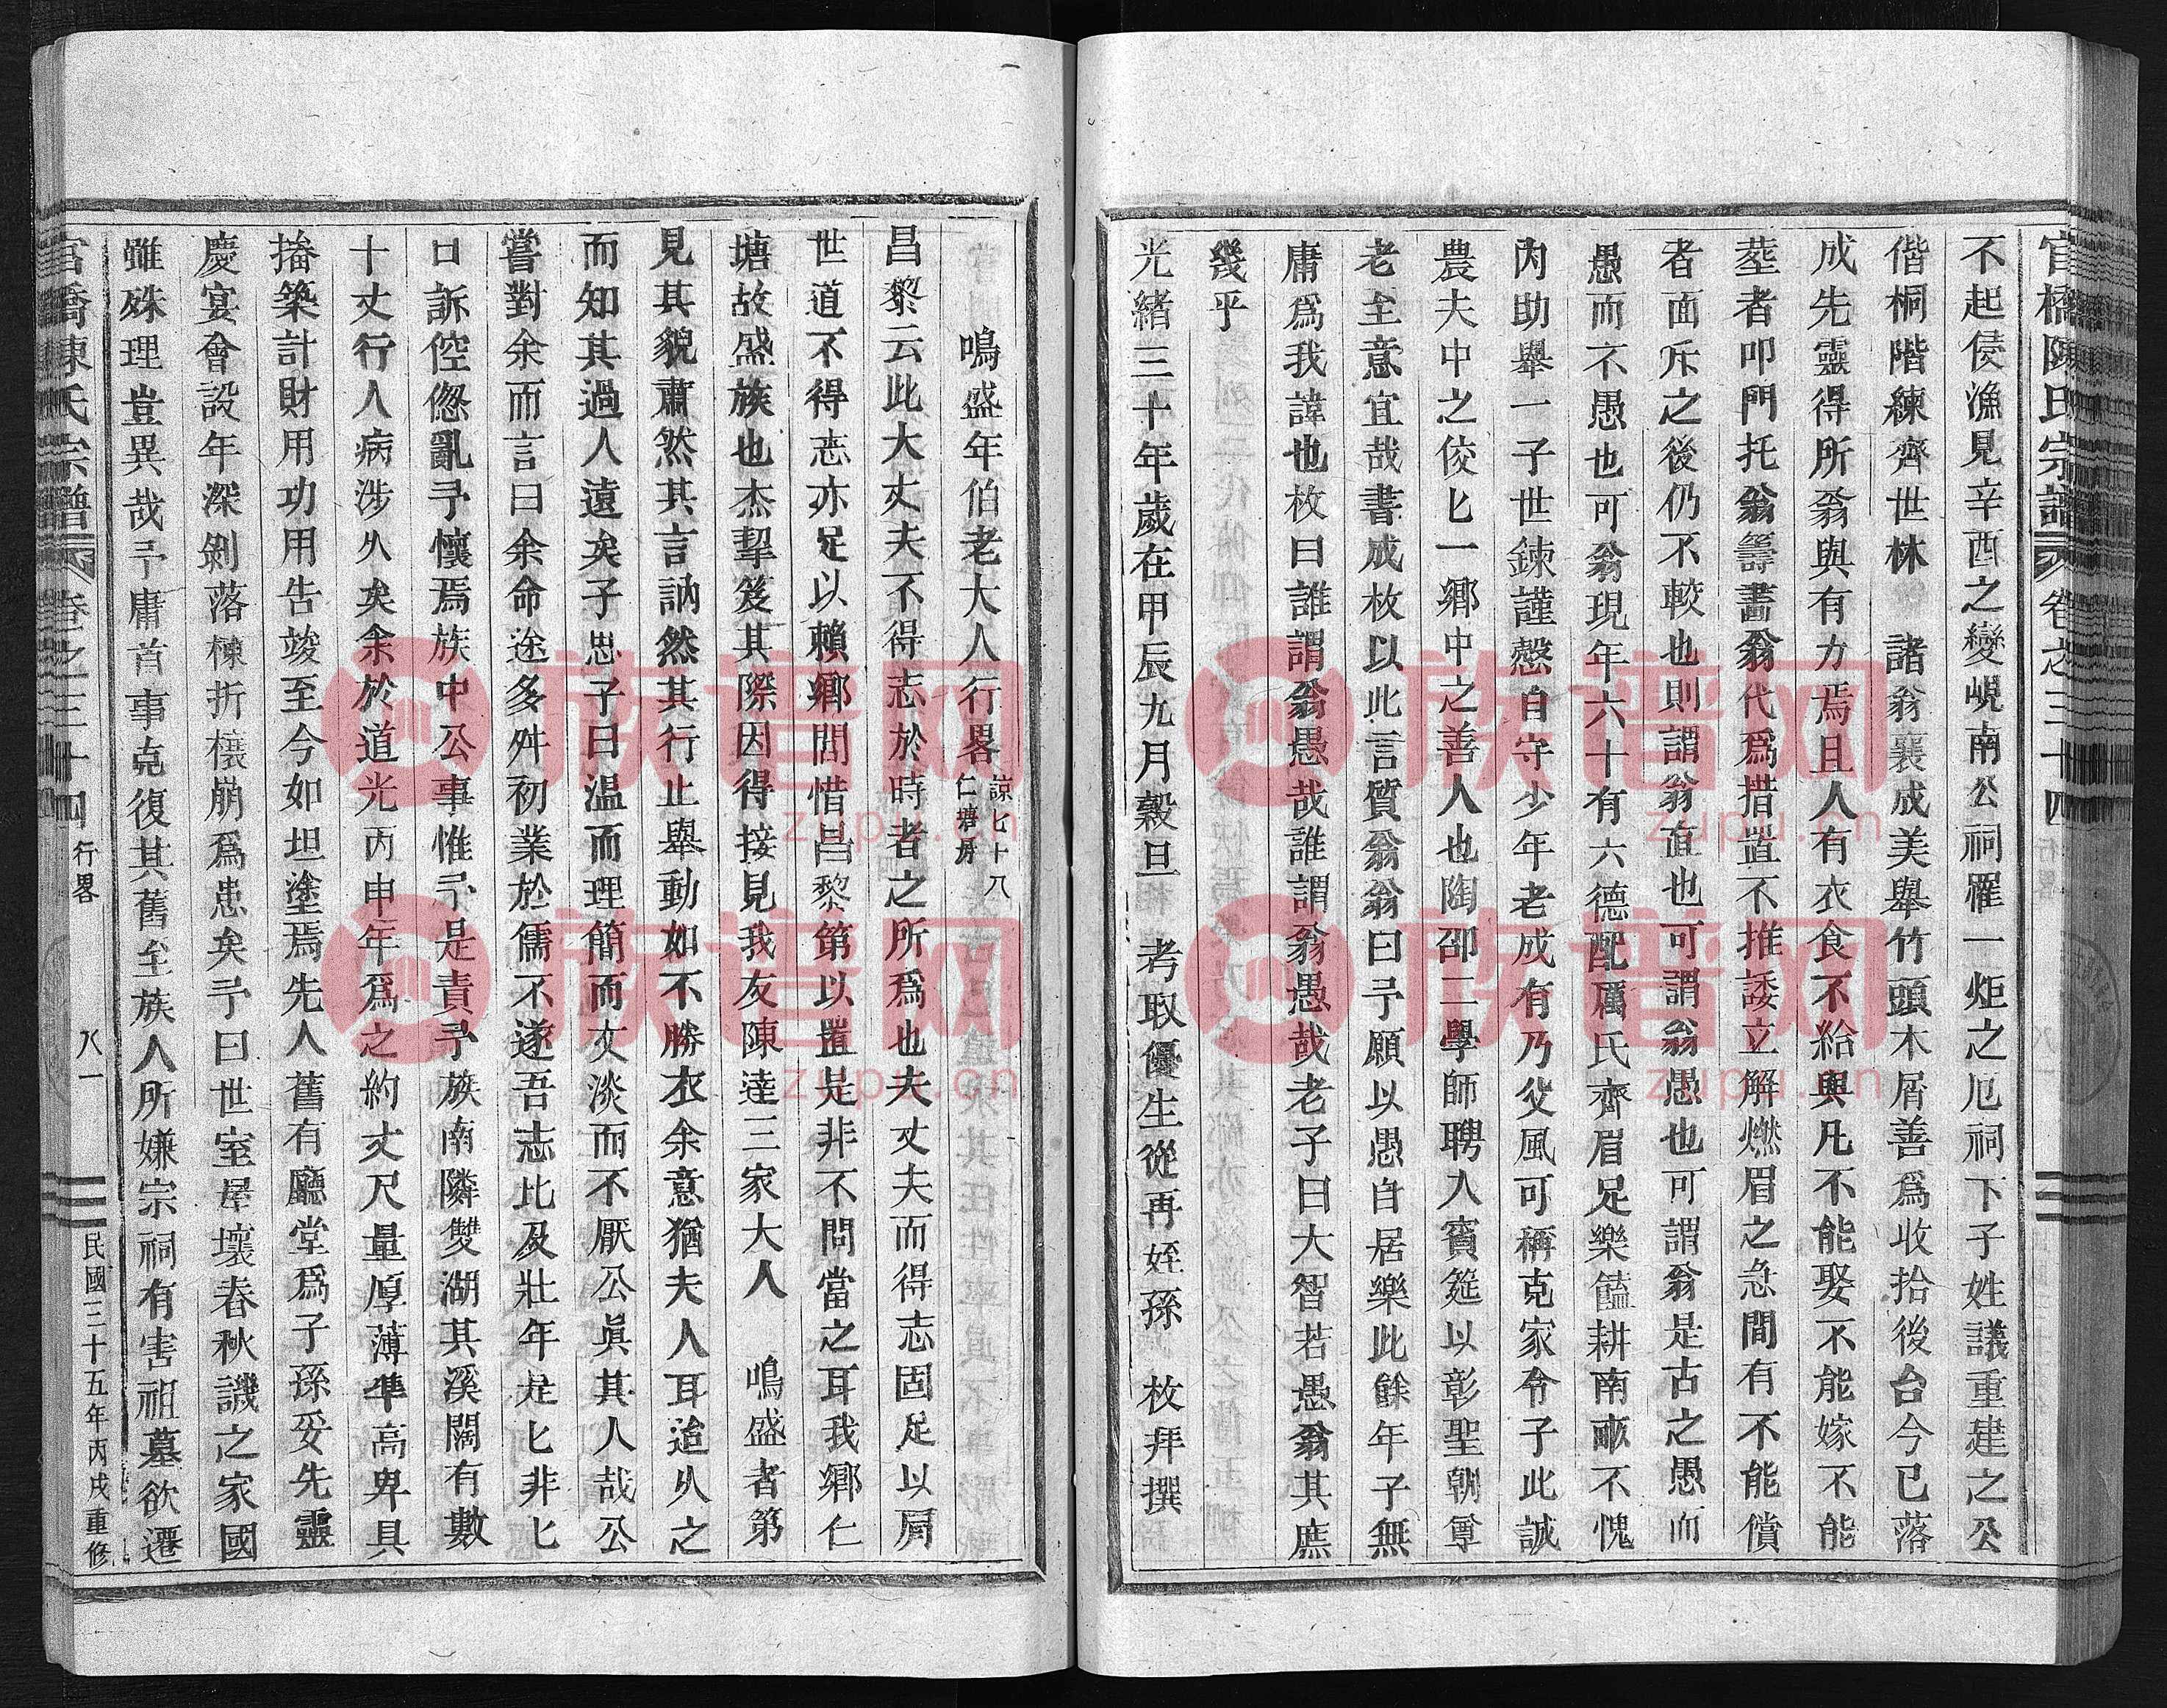 官橋陳氏宗譜 卷之三十四
不起侵漁見辛酉之變峴南公祠罹一炬之厄祠下子姓議重建之公
偕桐階練齊世林 諸翁襄成美舉竹頭木屑善爲收拾後台今已落
成先靈得所翁與有力焉且人有衣食不給與凡不能娶不能嫁不能
塟者叩門托翁籌畵翁代爲措置不推諉立解燃眉之急間有不能償
者面斥之後仍不較也則謂翁直也可謂翁愚也可謂翁是古之愚而
愚而不愚也可翁現年六十有六德配厲氏齊眉足樂饁耕南畝不愧
內助舉一子世鍊謹慤自守少年老成有乃父風可稱克家令子此誠
農夫中之佼匕一鄉中之善人也陶邵二學師聘入賓筵以彰聖朝尊
老至意宜哉書成枚以此言質翁翁曰予願以愚自居樂此餘年子無
庸爲我諱也枚曰誰謂翁愚哉誰謂翁愚哉老子曰大智若愚翁其庶
幾乎
光緒三十年歲在甲辰九月穀旦 考取優生從再姪孫 枚拜撰
鳴盛年伯老大人行畧 諒七十八 仁塘房
昌黎云此大丈夫不得志於時者之所爲也夫丈夫而得志固足以屑
世道不得志亦足以賴鄉閭惜昌黎第以置是非不問當之耳我鄉仁
塘故盛族也杰挈笈其際因得接見我友陳逹三家大人 鳴盛者第
見其貌肅然其言訥然其行止舉動如不勝衣余意猶夫人耳迨久之
而知其過人遠矣子思子曰温而理簡而文淡而不厭公眞其人哉公
嘗對余而言曰余命途多舛初業於儒不遂吾志比及壯年是匕非匕
口訴倥偬亂予懷焉族中公事惟予是責予族南隣雙湖其溪濶有數
十丈行人病涉久矣余於道光丙申年爲之約丈尺量厚薄準高卑具
搚築計財用功用告竣至今如坦塗焉先人舊有廳堂爲子孫妥先靈
慶宴會設年深剝落棟折榱崩爲患矣予曰世室屋壞春秋譏之家國
雖殊理豈異哉予庸首事克復其舊至族人所嫌宗祠有害祖墓欲遷
官橋陳氏宗譜 卷之三十四 行畧 八一 民國三十五年丙戌重修
族谱网
zupu.cn
族谱网
zupu.cn
族谱网
zupu.cn
族谱网
zupu.cn